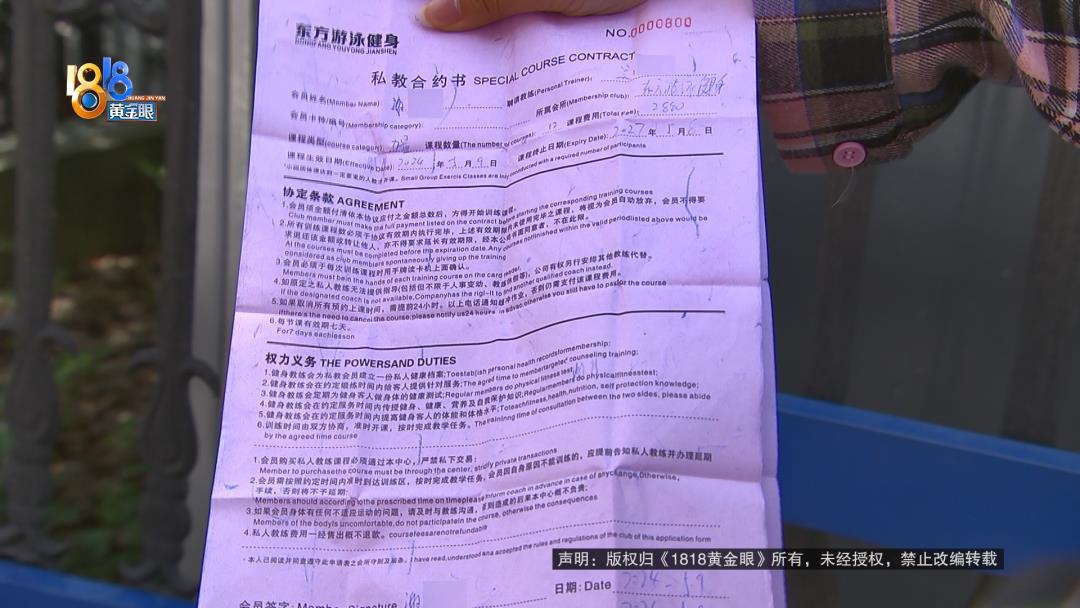 东方游泳健身
DONG FANG YOUYONG JIANSHEN
NO.0000800
1818
HUANG JIN YAN
黄金眼
私教合约书 SPECIAL COURSE CONTRACT
会员姓名(Member Name): 聘请教练(Personal Trainer):
会员卡种/编号(Membership category): 所属会所(Membership club):
课程类型(course category): 课程数量(The number of courses): 12 课程费用(Total Fee): 2880
课程生效日期(Effective Date): 2024 年 月 9 日 课程终止日期(Expiry Date): 2027 年 月 日
*小组团体课达到一定要求的人数才开课。Small Group Exercis Classes are only conducted with a required number of participants
协定条款 AGREEMENT
1.会员须全额付清依本协议应付之金额总数后，方得开始训练课程。
Club member must make the full payment listed on the contract before starting the corresponding training courses
2.所有训练课程数必须于协议有效期内执行完毕，上述有效期限内未使用完毕之课程，将视为会员自动放弃，会员不得要
求退还依金额或转让他人，亦不得要求延长有效期限，经本公司书面同意者，不在此限。
All the courses must be completed before the expiration date.Any courses nofinished within the valid periodlisted above would be
considered as club members spontaneously giving up the training
3.会员必须于每次训练课程时用手牌读卡机上面确认。
Members must be in the hands of each training course on the card reader.
4.如原定之私人教练无法提供指导(包括但不限于人事变动、教练休假等)，公司有权另行安排其他教练代替。
If the designated coach is not available,Companyhas the rigI-II to find another qualified coach instead.
5.如果取消所有预约上课时间，需提前24小时。以上电话通知或冲作业，否则仍需支付该课程费用。
Ifthere's the need to cancel the course,please notify us24 hours in advac,otherwise you still have to pay for the course
6.每节课有效期七天。
For7 days eachlesson
权力义务 THE POWERSAND DUTIES
1.健身教练会为私教会员建立一份私人健康档案;Toestablish personal health recordsformembership;
2.健身教练会在约定锻炼时间内给客人提供针对服务;The agreed time to membertargeted counseling training;
3.健身教练会定期为健身客人做身体的健康测试;Regular members do physical fitness test;Regularmembers do physicalfitnesstest;
4.健身教练会在约定服务时间内传授健身、健康、营养及自我保护知识;Toteachfitness,health,nutrition, self protection knowledge;
5.健身教练会在约定服务时间内提高健身客人的体能和体格水平;
6.训练时间由双方协商，准时开课，按时完成教学任务。The trainlnng time of consultation between the two sides, please abide
by the agreed time course
1.会员购买私人教练课程必须通过本中心，严禁私下交易;
Member to purchasethe course must be through the center, strictly private transactions
2.会员需按照约定时间内准时到达训练区，按时完成教学任务，会员因自身原因不能训练的，应提前告知私人教练并办理延期
手续，否则将不予延期;
Members should according tothe prescribed time on timeplease inform coach in advance in case of anychange.Otherwise,
3.如果会员身体有任何不适应运动的问题，请及时与教练沟通，否则造成的后果本中心概不负责;
Members of the bodyis uncomfortable,do not participatein the course, otherwise the consequences
4.私人教练费用一经售出概不退款。coursefeesarenotrefundable
·本人已阅读并同意遵守此申请表之会所守则及服条。I have read,understood ana accepted the rules and regulations of the club of this application form
日期: Date 2024
会员签字: Member Signature
声明：版权归《1818黄金眼》所有，未经授权，禁止改编转载